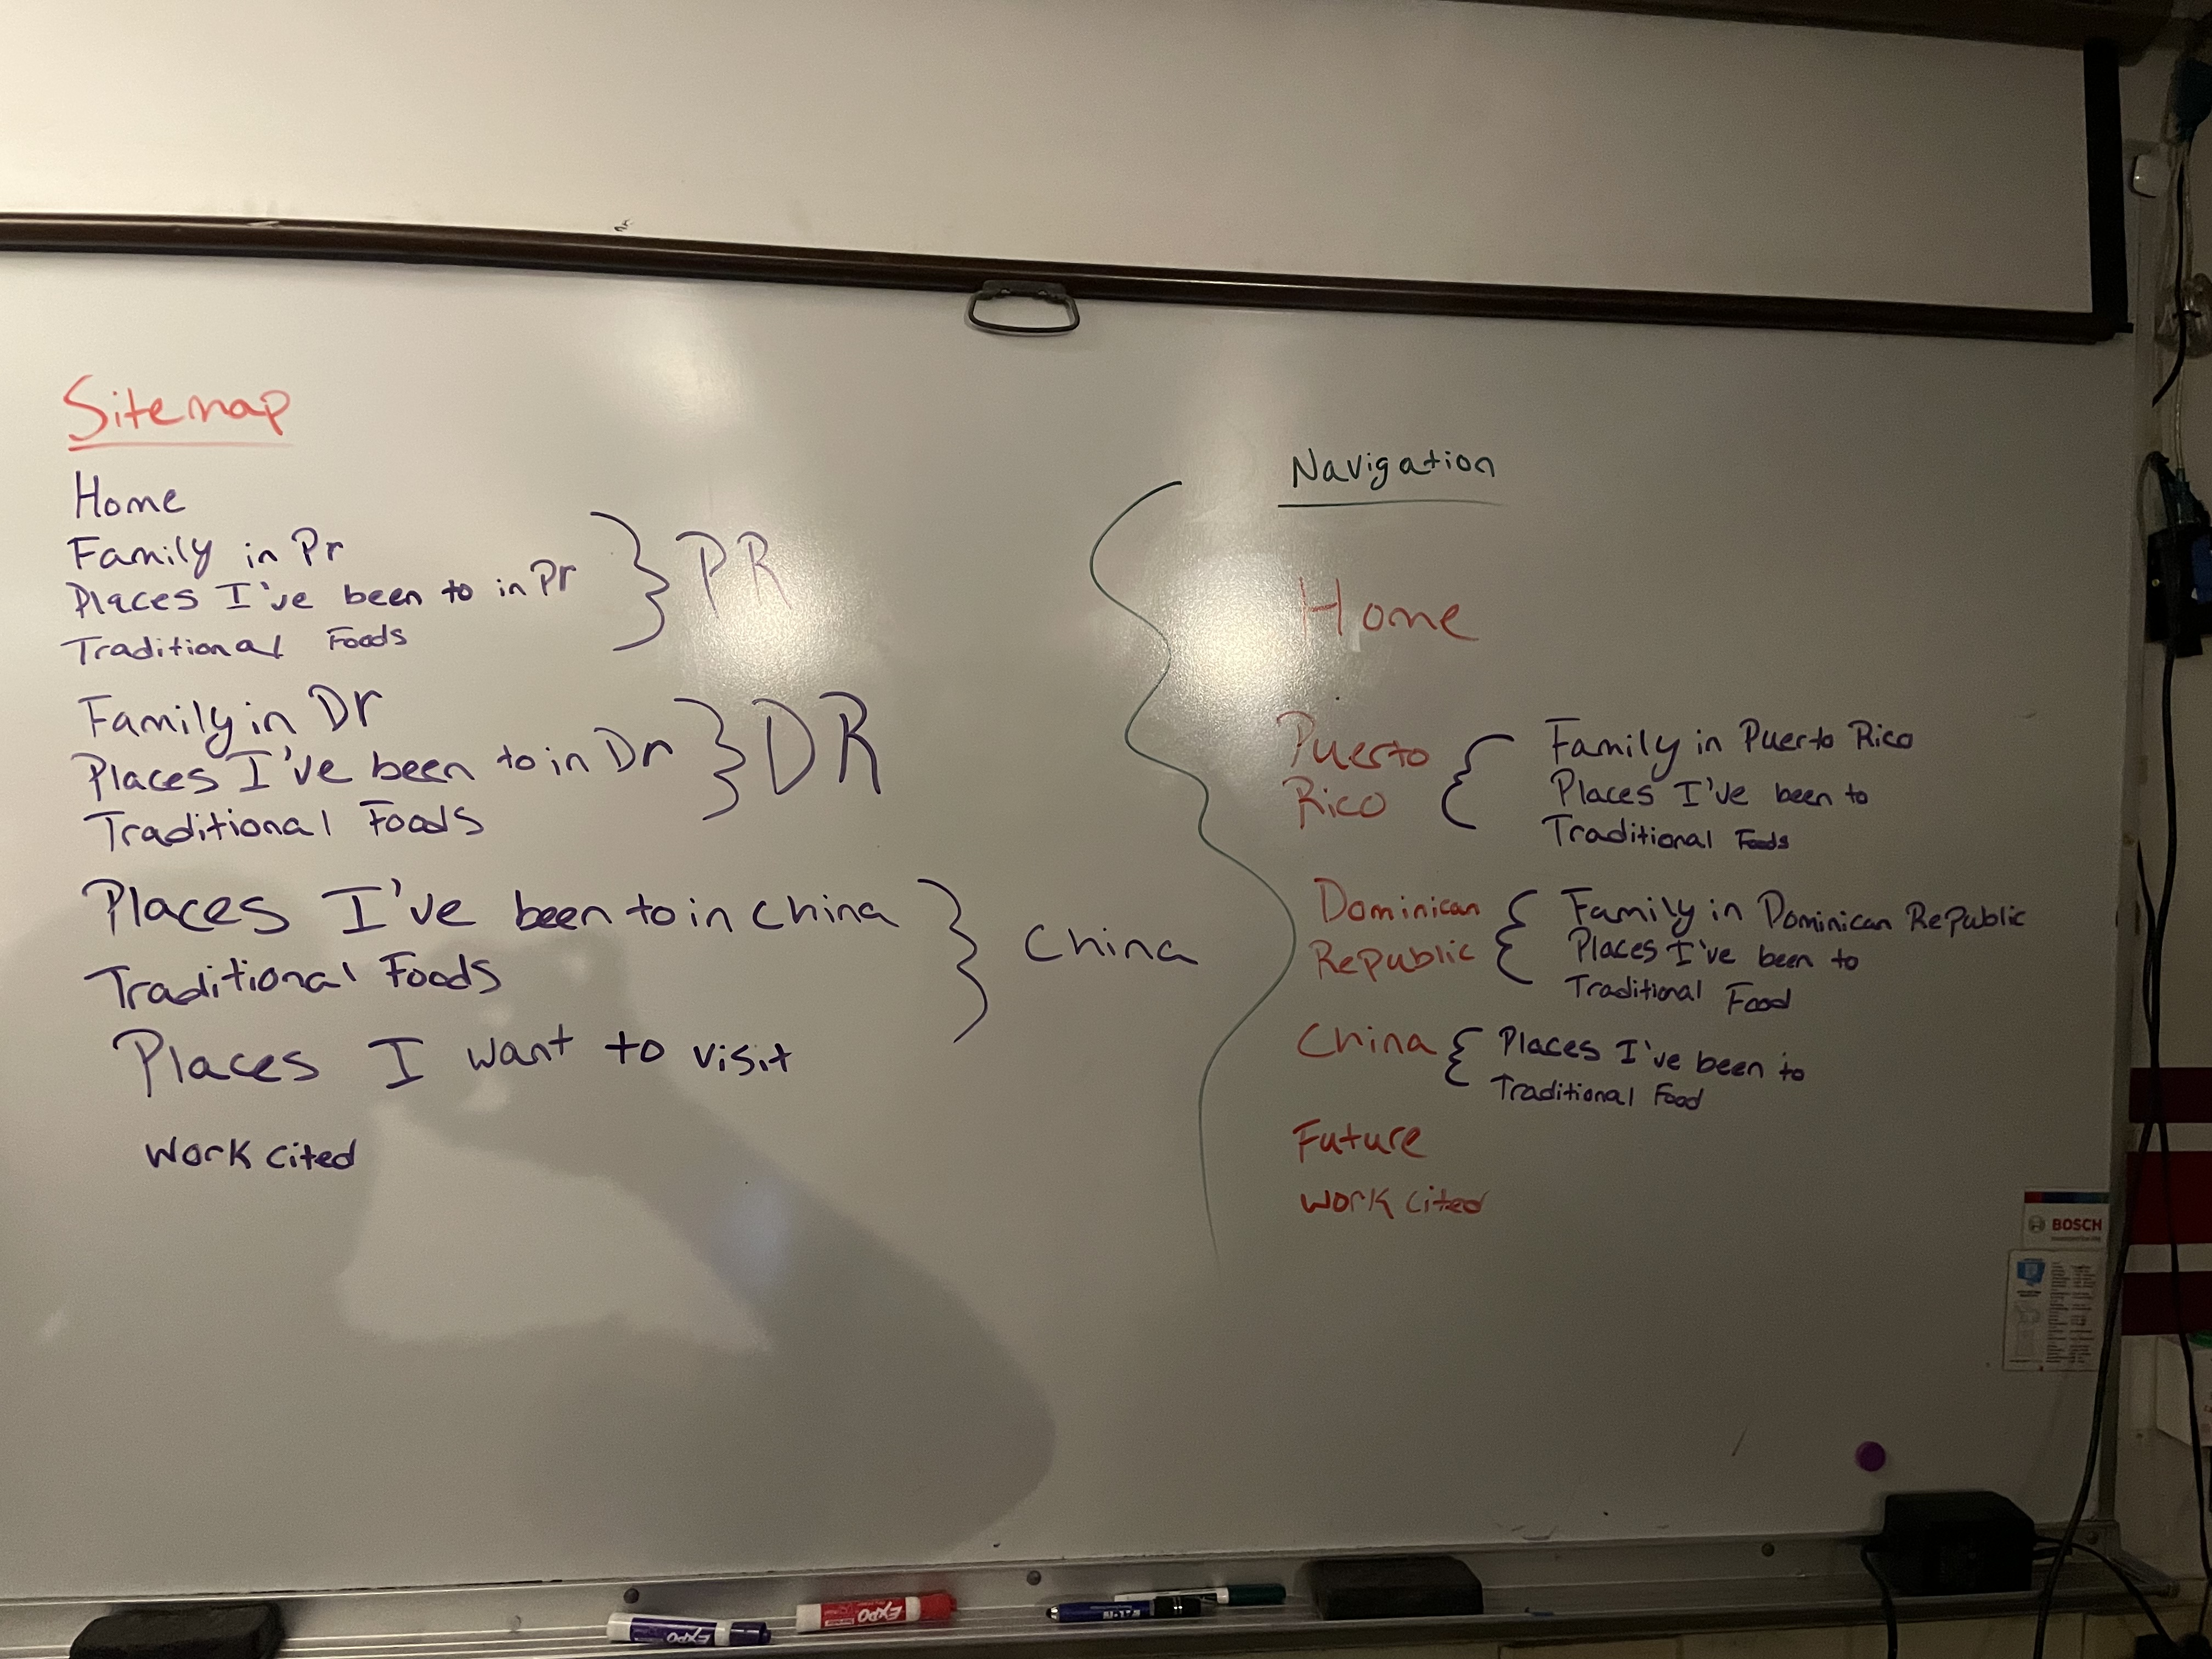 Sitemap
Home
Family in Pr
Places I've been to in Pr
Traditional Foods
PR
Family in Dr
Places I've been to in Dr
Traditional Foods
DR
Places I've been to in China
Traditional Foods
China
Places I want to visit
Work cited
Navigation
Home
Puerto
Rico
Family in Puerto Rico
Places I've been to
Traditional Foods
Dominican
Republic
Family in Dominican Republic
Places I've been to
Traditional Food
China
Places I've been to
Traditional Food
Future
Work cited
BOSCH
EXPO
EXPO